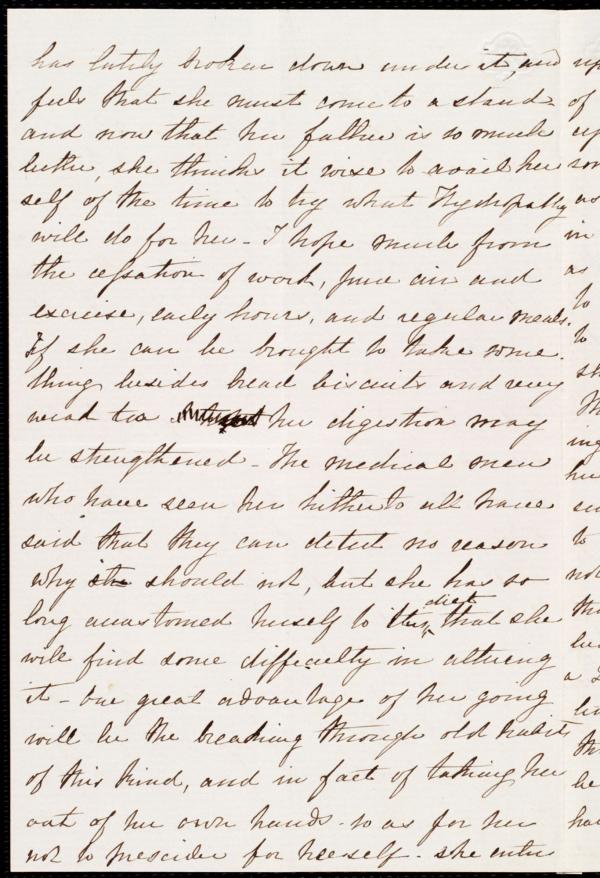 has lately broken down under it, and
feels that she must come to a stand -
and now that her father is so much
better, she thinks it wise to avail her
self of the time to try what Hydropathy
will do for her - I hope much from
the cessation of work, pure air and
exercise, early hours, and regular meals.
If she can be brought to take some
thing besides bread biscuits and very
weak tea her digestion may
be strengthened - The medical men
who have seen her hitherto all have
said that they can detect no reason
why she should not, but she has so
diet
long accustomed herself to this, that she
will find some difficulty in altering
it - One great advantage of her going
will be the breaking through old habits
of this kind, and in fact of taking her
out of her own hands - so as for her
not to prescribe for herself - she enters
up
of
as
in
as
to
to
Th
ing
her
to
not
a
be